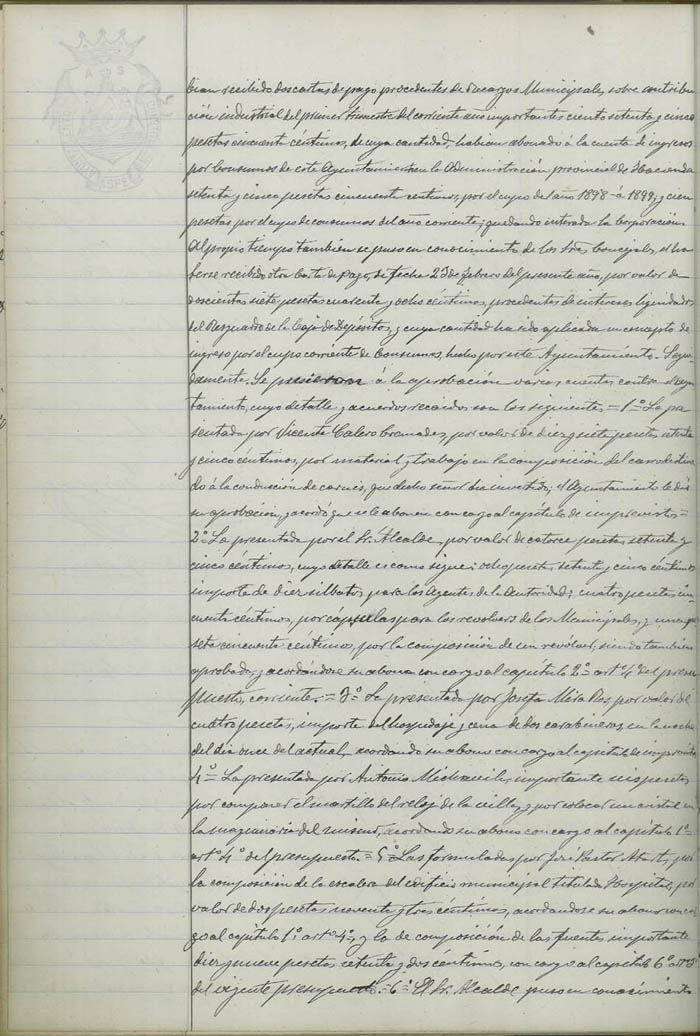 bian recibido dos cartas de pago procedentes de recargos Municipales, sobre contribu
ción industrial del primer trimestre del corriente año importantes ciento setenta y cinco
pesetas cincuenta céntimos, de cuya cantidad, habian abonado á la cuenta de ingresos
por Consumos de este Ayuntamiento en la Administración provincial de Hacienda
setenta y cinco pesetas cincuenta centimos, por el cupo del año 1898 á 1899; y cien
pesetas por el cupo de consumos del año corriente; quedando enterada la Corporación
Al propio tiempo tambien se puso en conocimiento de los Sres Concejales, el ha
berse recibido otra Carta de pago, de fecha 23 de febrero del presente año, por valor de
doscientas siete pesetas cuarenta y ocho céntimos, procedentes de intereses liquidados
del Resguardo de la Caja de Depósitos, y cuya cantidad ha sido aplicada en concepto de
ingreso por el cupo corriente de Consumos, hecho por este Ayuntamiento. Segui
damente. Se pusieron á la aprobación varias cuentas contra el Ayun
tamiento, cuyo detalle y acuerdos recaidos son los siguientes = 1º La pre
sentada por Vicente Calero Cremades, por valor de diez y siete pesetas setenta
y cinco céntimos, por material y trabajo en la composición del carro destina
do á la conducción de carnes, que dicho señor ha invertido; el Ayuntamiento le dió
su aprobacion, y acordó que se le abone con cargo al capitulo de imprevistos =
2º La presentada por el Sr. Alcalde, por valor de catorce pesetas, setenta y
cinco céntimos, cuyo detalle es como sigue: ocho pesetas setenta y cinco céntimos
importe de diez silbatos para los Agentes de la Autoridad; cuatro pesetas cin
cuenta céntimos, por cápsulas para los revolvers de los Municipales, y una pe
seta cincuenta céntimos, por la composición de un revólver, siendo tambien
aprobada, y acordándose su abono con cargo al capítulo 2º artº 4º del presu
puesto, corriente. = 3º La presentada por Josefa Mira Ros, por valor de
cuatro pesetas, importe del hospedaje y cena de dos carabineros, en la noche
del dia once del actual, acordando su abono con cargo al capitulo de imprevistos
4º = La presentada por Antonio Michavila, importante seis pesetas
por componer el martillo del reloj de la villa, y por colocar un cristal en
la maquinária del mismo, acordando su abono con cargo al capítulo 1º
artº 4º del presupuesto. = 5º Las formuladas por José Pastor por
la composición de la escalera del edificio municipal titulado Hospital, por
valor de dos pesetas noventa y tres céntimos, acordandose su abono con car
go al capítulo 1º artº 4º, y la de composición de las fuentes importante
diez y nueve pesetas setenta y dos céntimos, con cargo al capítulo 6º artº
del vigente presupuesto. = 6º El Sr. Alcalde puso en conocimiento